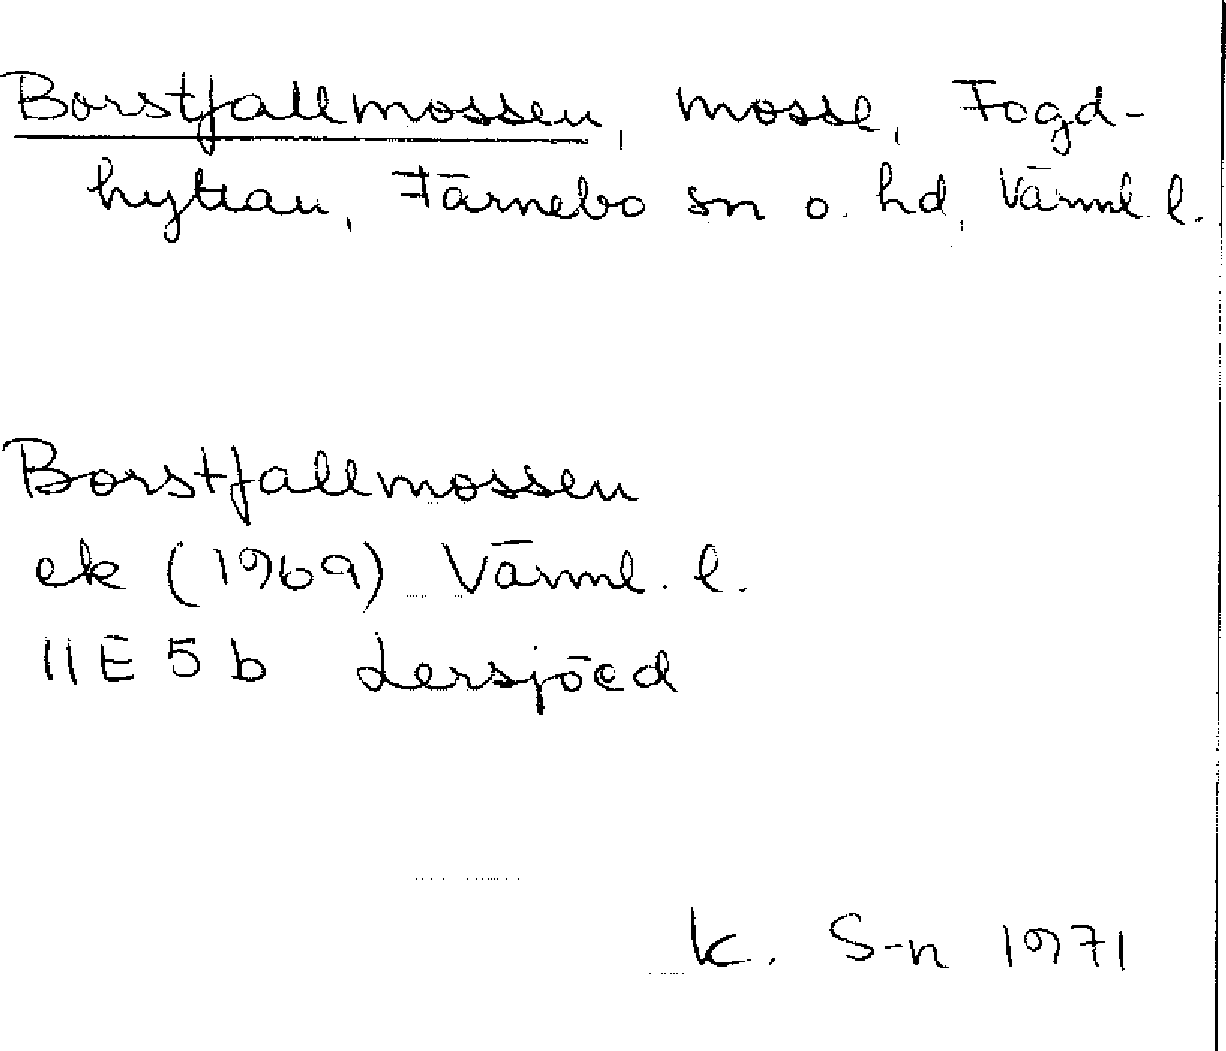 Borstfallmossen, mosse, Fogd-
hyttan, Färnebo sn o. hd, Värml. l.
Borstfallmossen
ek (1969) Värml. l.
11E 5 b Lersjöed
K. S-n 1971